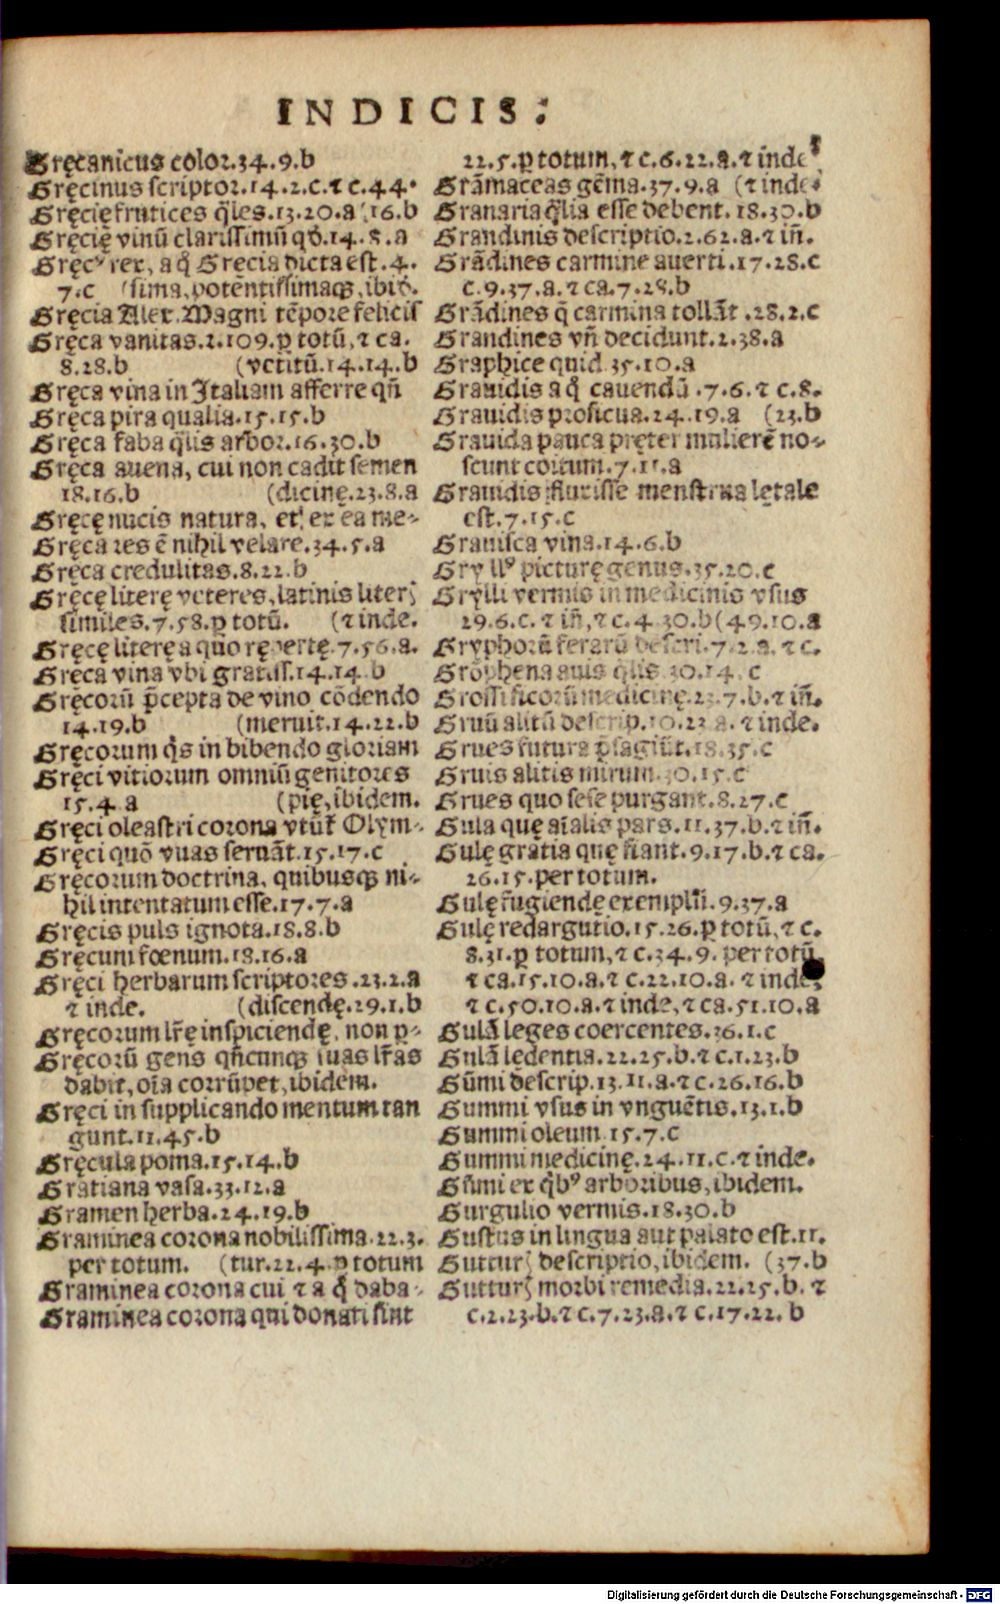 INDICIS:
Gręcanicus color.34.9.b
Gręcinus scriptor.14.2.c.⁊ c.44.
Gręcię frutices q̃les.13.20.a 16.b
Gręcię vinũ clarissimũ qđ.14.8.a
Gręcꝰ rex, a q̃ Grecia dicta est.4.
7.c (sima, potentissimaqꝫ, ibid.
Gręcia Alex. Magni tẽpore felicis
Gręca vanitas.2.109.ꝑ totũ, ⁊ ca.
8.28.b (vetitũ.14.14.b
Gręca vina in Italiam afferre qñ
Gręca pira qualia.15.15.b
Gręca faba q̃lis arbor.16.30.b
Gręca auena, cui non cadit semen
18.16.b (dicinę.23.8.a
Gręcę nucis natura, et ex ea me-
Gręca res ẽ nihil velare.34.5.a
Gręca credulitas.8.22.b
Gręcę literę veteres, latinis literꝭ
similes.7.58.ꝑ totũ. (⁊ inde.
Gręcę literę a quo repertę.7.56.a.
Gręca vina vbi gratiss.14.14.b
Gręcorũ p̃cepta de vino cõdendo
14.19.b (meruit.14.22.b
Gręcorum q̃s in bibendo gloriam
Gręci vitiorum omniũ genitores
15.4.a (pię, ibidem.
Gręci oleastri corona vtũt̃ Olym-
Gręci quõ vuas seruãt.15.17.c
Gręcorum doctrina, quibusqꝫ ni-
hil intentatum esse.17.7.a
Gręcis puls ignota.18.8.b
Gręcum fœnum.18.16.a
Gręci herbarum scriptores.23.2.a
⁊ inde. (discendę.29.1.b
Gręcorum lr̃ę inspiciendę, non ꝑ-
Gręcorũ gens qñcunqꝫ suas lr̃as
dabit, oĩa corrũpet, ibidem.
Gręci in supplicando mentum tan
gunt.11.45.b
Gręcula poma.15.14.b
Gratiana vasa.33.12.a
Gramen herba.24.19.b
Graminea corona nobilissima.22.3.
per totum. (tur.22.4.ꝑ totum
Graminea corona cui ⁊ a q̃ daba-
Graminea corona qui donati sint
22.5.ꝑ totum, ⁊ c.6.22.a.⁊ inde
Grãmaceas gẽma.37.9.a (⁊ inde.
Granaria q̃lia esse debent.18.30.b
Grandinis descriptio.2.62.a.⁊ iñ.
Grãdines carmine auerti.17.28.c
c.9.37.a.⁊ ca.7.28.b
Grãdines q̃ carmina tollãt.28.2.c
Grandines vñ decidunt.2.38.a
Graphice quid.35.10.a
Grauidis a q̃ cauendũ.7.6.⁊ c.8.
Grauidis proficua.24.19.a (23.b
Grauida pauca pręter mulierẽ no-
scunt coitum.7.11.a
Grauidis fluxisse menstrua lętale
est.7.15.c
Grauisca vina.14.6.b
Gryllꝰ picturę genus.35.20.c
Grylli vermis in medicinis vsus
29.6.c.⁊ iñ, ⁊ c.4.30.b(49.10.a
Gryphorũ ferarũ descri.7.2.a.⁊ c.
Grõphena auis q̃lis.30.14.c
Grossi ficorũ medicinę.23.7.b.⁊ iñ.
Gruũ alitũ descrip.10.23.a.⁊ inde.
Grues futura p̃sagiũt.18.35.c
Gruis alitis mirum.30.15.c
Grues quo sese purgant.8.27.c
Gula quę aĩalis pars.11.37.b.⁊ iñ.
Gulę gratia quę fiant.9.17.b.⁊ ca.
26.15.per totum.
Gulę fugiendę exemplũ.9.37.a
Gulę redargutio.15.26.ꝑ totũ, ⁊ c.
8.31.ꝑ totum, ⁊ c.34.9.per totũ,
⁊ ca.15.10.a.⁊ c.22.10.a.⁊ inde,
⁊ c.50.10.a.⁊ inde, ⁊ ca.51.10.a
Gulã leges coercentes.36.1.c
Gulã lędentia.22.25.b.⁊ c.1.23.b
Gũmi descrip.13.11.a.⁊ c.26.16.b
Gummi vsus in vnguẽtis.13.1.b
Gummi oleum.15.7.c
Gummi medicinę.24.11.c.⁊ inde.
Gũmi ex q̃bꝰ arboribus, ibidem.
Gurgulio vermis.18.30.b
Gustus in lingua aut palato est.11.
Gutturꝭ descriptio, ibidem. (37.b
Gutturꝭ morbi remedia.22.25.b.⁊
c.2.23.b.⁊ c.7.23.a.⁊ c.17.22.b
Digitalisierung gefördert durch die Deutsche Forschungsgemeinschaft - DFG